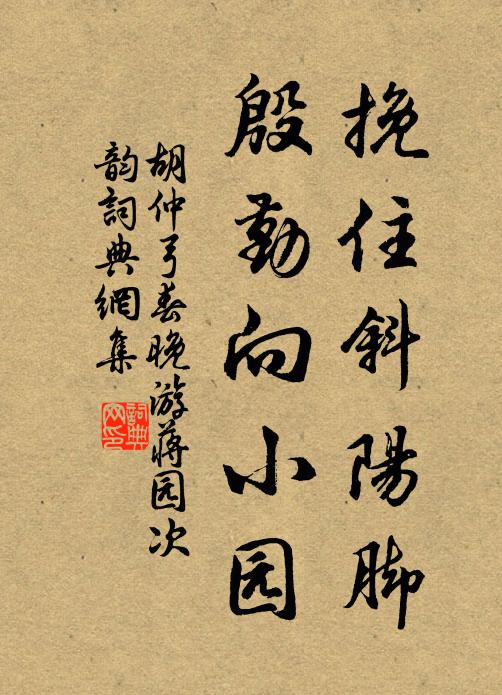 挽住斜陽脚
殷勤向小园
胡仲弓春晚游蔣园次
韵詞典網集
詞典网印